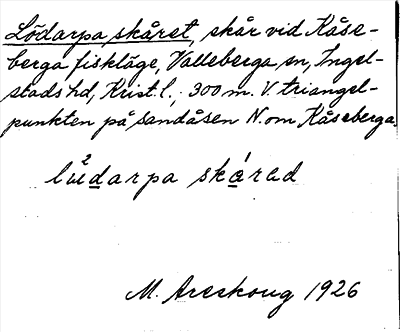 Lödarpa skåret, skår vid Kåse-
berga fiskläge, Valleberga sn, Ingel-
stads hd, Krist. l., 300 m. V. triangel-
punkten på sandåsen N. om Kåseberga.
lùdarpa skárəd
M. Areskoug 1926